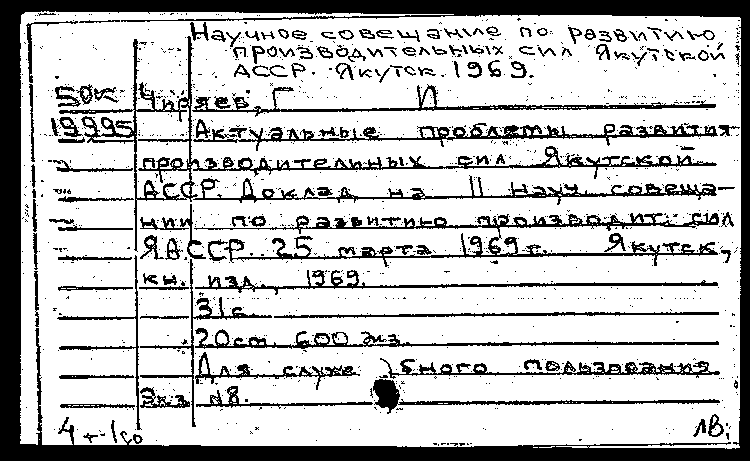 Научное совещание по развитию
производительных сил Якутской
АССР. Якутск. 1969.
50к Чиряев, Г И
19995 Актуальные проблемы развития
производителиных сил Якутской
АССР. Доклад на II науч. совеща-
нии по развитию производит. сил
ЯАССР. 25 марта 1969г. Якутск,
кн. изд., 1969.
31с.
20см. 600 экз.
Для служебного пользования
Экз N8.